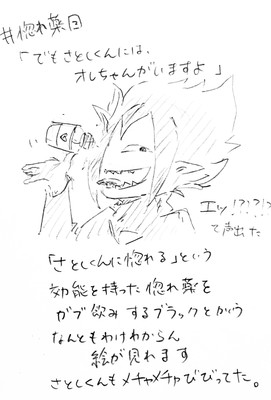 #惚れ薬回
「でもさとしくんには、
オレちゃんがいますよ」
エッ!?!?!?
て声出た
「さとしくんに惚れる」という
効能を持った惚れ薬を
ガブ飲みするブラックとかいう
なんともわけわからん
絵が見れます
さとしくんもメチャメチャびびってた。